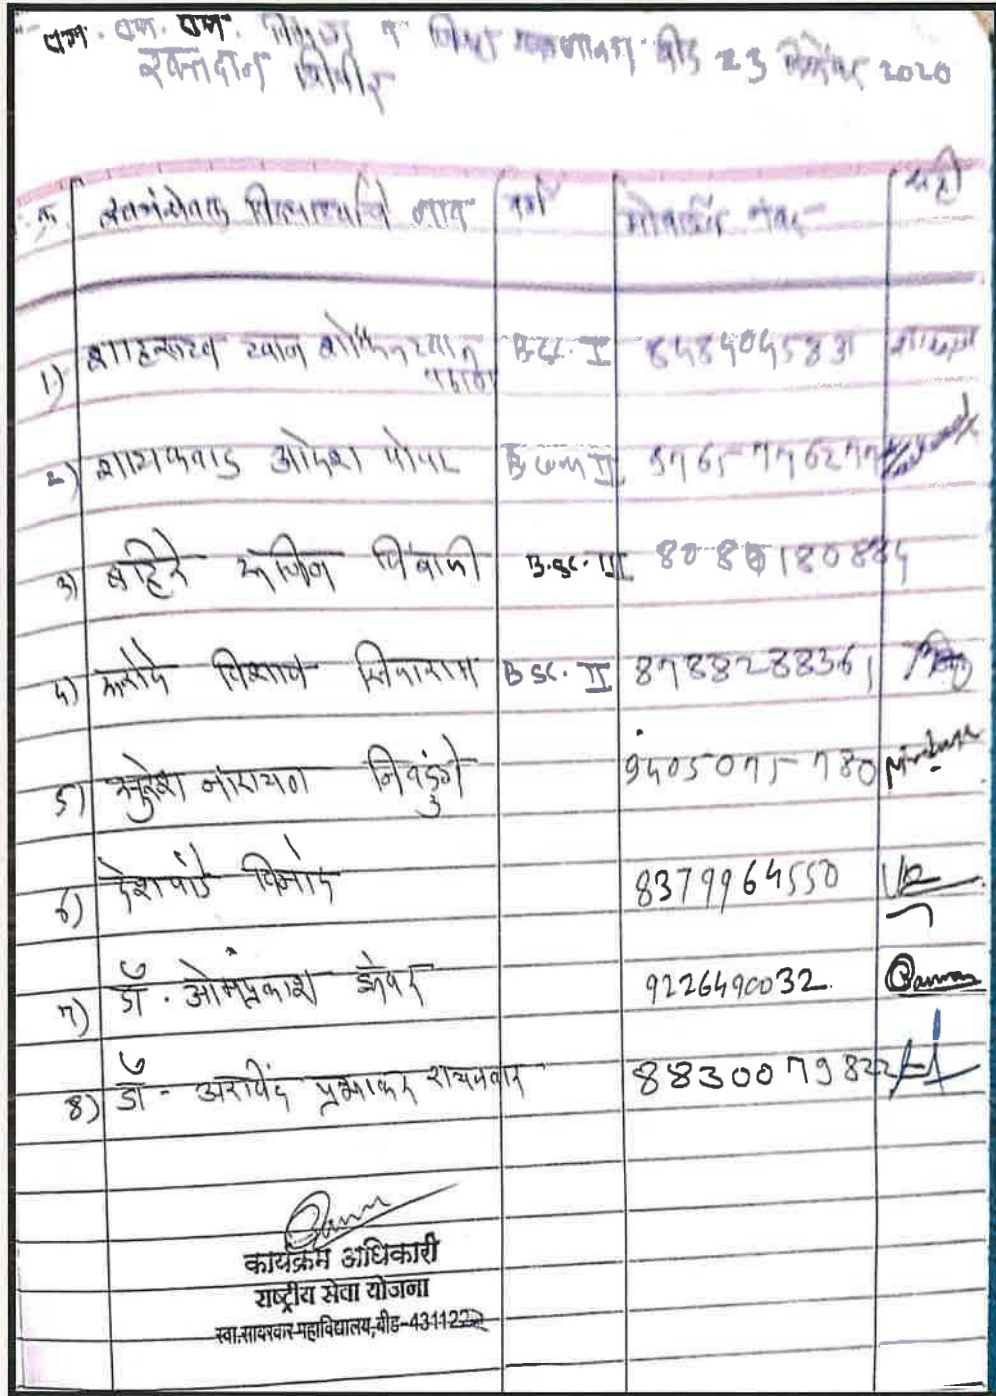 एन. एस. एस. विभाग व जिल्हा बीड 23 डिसेंबर 2020
रक्तदान शिबीर
अ.क्र. स्वयंसेवक विद्यार्थ्याचे नाव वर्ग मोबाईल नंबर सही
1) शाहरूख खान B.Sc. I
पठाण
2) गायकवाड ओमेश पोपट B.com II
3) बहिरे सचिन शिवाजी B.sc. III
4) विशाल सिताराम B SC. II 8788288361
5) सुरेश नारायण निवडुंगे 9405075780
6) देशपांडे विनोद 8379964550
7) डॉ. ओमप्रकाश झंवर 9226490032
8) डॉ - अरविंद प्रभाकर रायनवार 8830079822
कार्यक्रम अधिकारी
राष्ट्रीय सेवा योजना
स्वा.सावरकर महाविद्यालय,बीड-431122